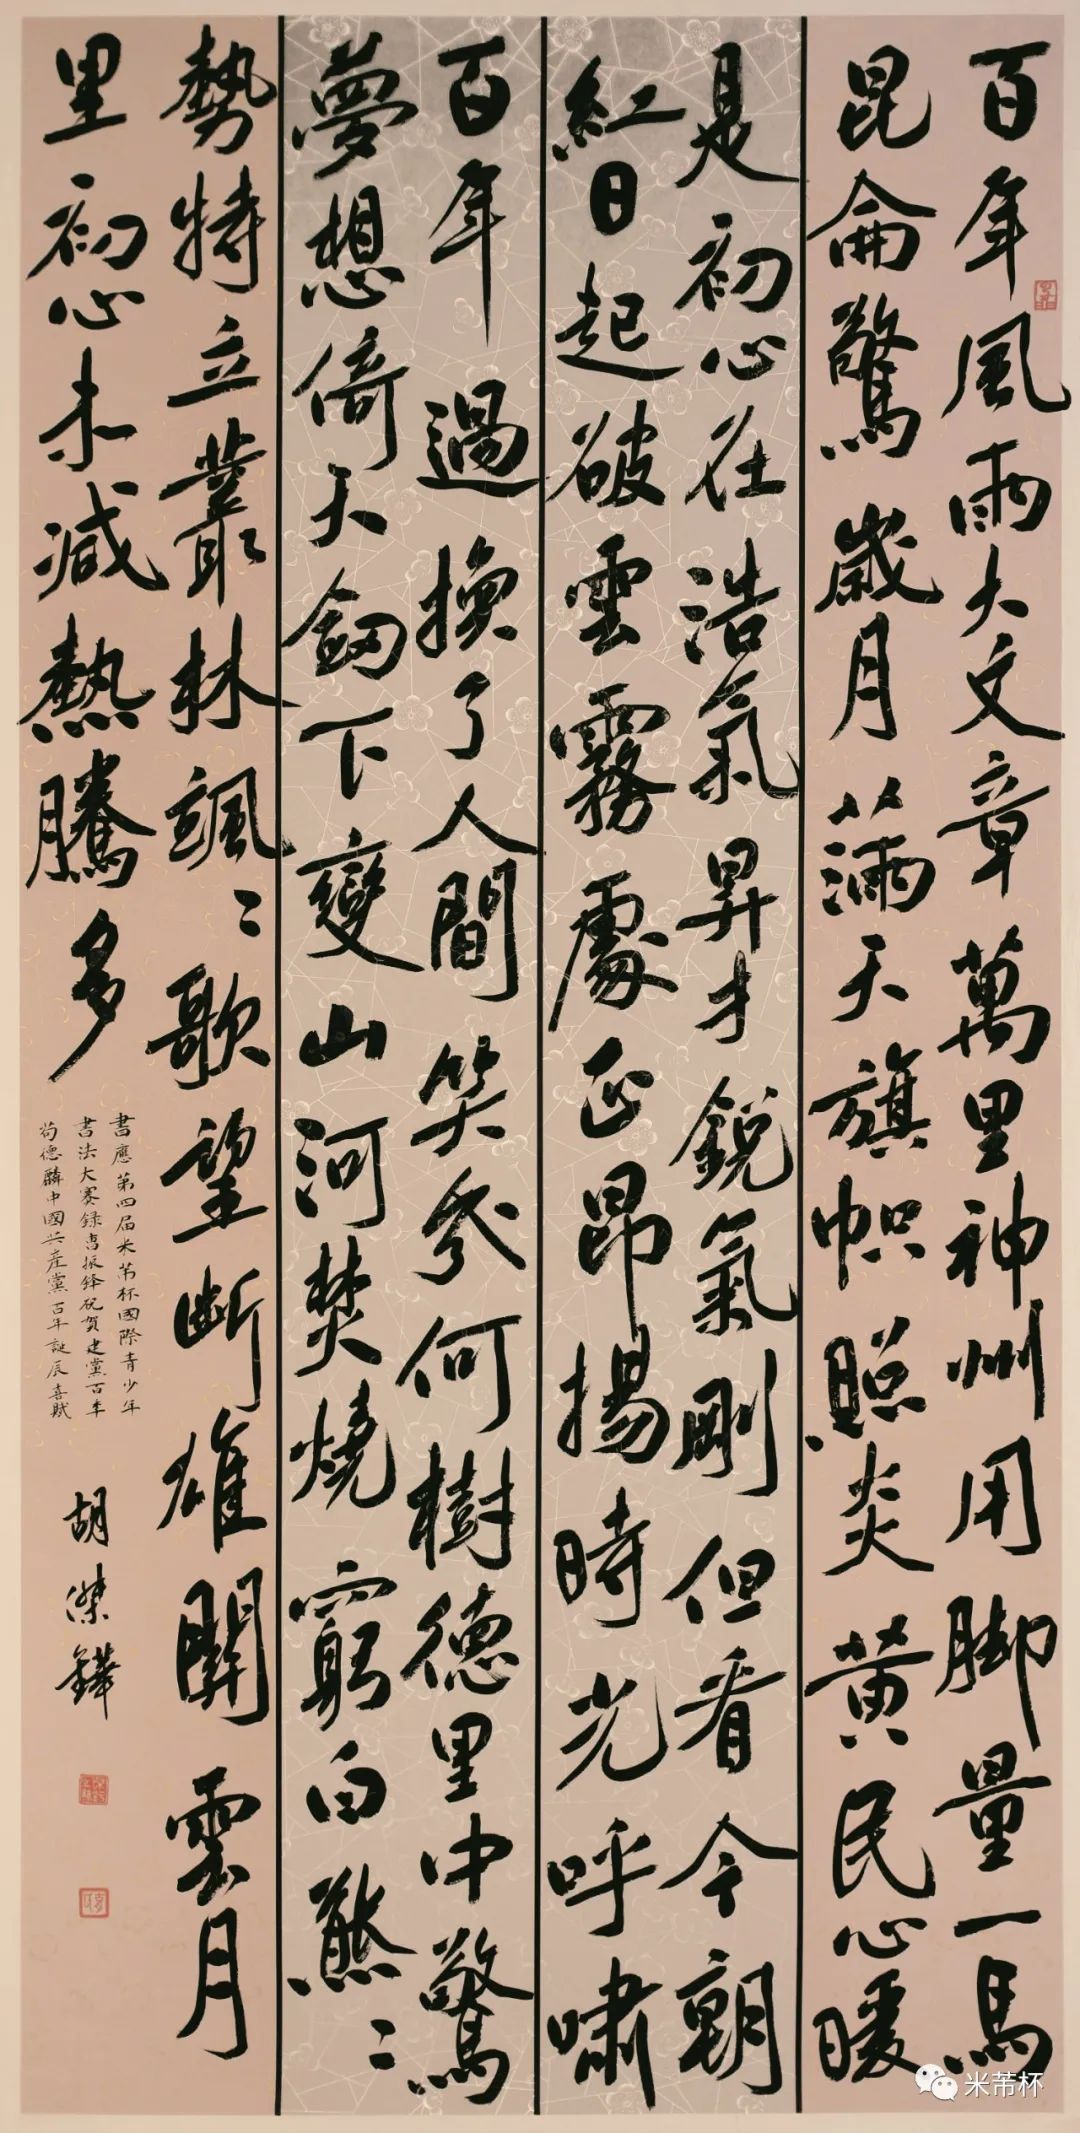 百年風雨大文章萬里神州用脚量一馬
昆侖驚歲月滿天旗幟照炎黄民心暖
是初心在浩氣昇才銳氣剛但看今朝
紅日起破雲霧處正昂揚時光呼嘯
百年過換了人間笑於何樹德里中驚
夢想倚天劍下變山河焚燒窮白熊〻
勢特立叢林颯〻歌望斷雄關雲月
里初心未減熱騰多
書應第四届米芾杯國際青少年
書法大賽録袁振鋒祝賀建黨百年
苟德麟中國共産黨百年誕辰喜賦
胡傑鏵
米芾杯